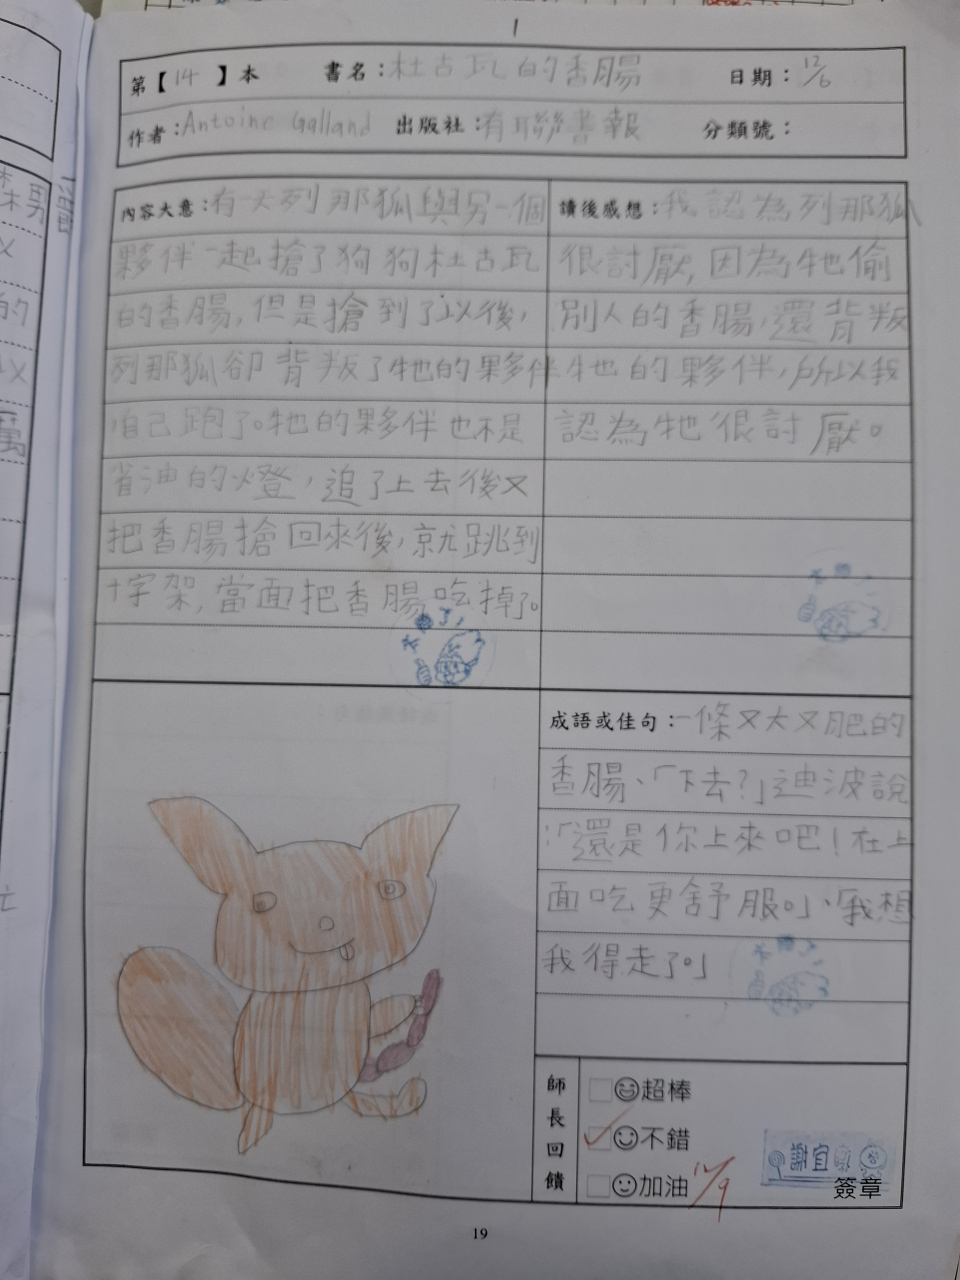 1
第【14】本 書名：杜古瓦的香腸 日期：12/6
作者：Antoine Galland 出版社：有聯書報 分類號：
內容大意：有一天列那狐與另一個
夥伴一起搶了狗狗杜古瓦
的香腸，但是搶到了以後，
列那狐卻背叛了牠的夥伴
自己跑了。牠的夥伴也不是
省油的燈，追了上去後又
把香腸搶回來後，就跳到
十字架，當面把香腸吃掉了。
讀後感想：我認為列那狐
很討厭，因為牠偷
別人的香腸，還背叛
牠的夥伴，所以我
認為牠很討厭。
成語或佳句：一條又大又肥的
香腸、「下去？」迪波說
：「還是你上來吧！在上
面吃更舒服。」、「我想
我得走了。」
師長回饋
超棒
不錯
加油 12/9
謝宜
簽章
19